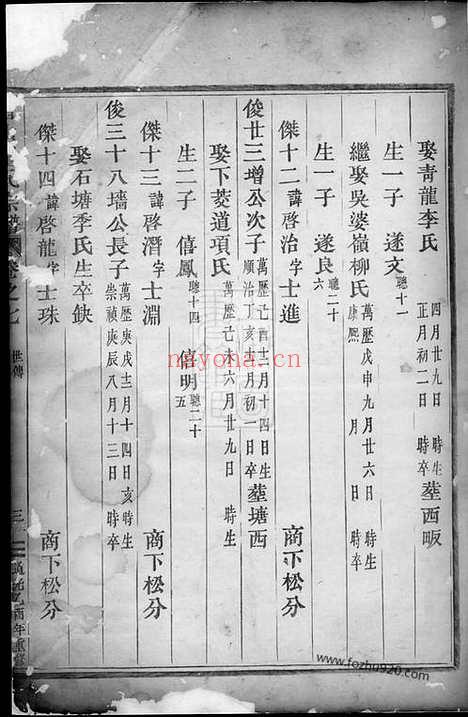 娶青龍李氏 四月廿九日 時生 正月初二日 時卒 塟西畈
生一子 遂文 聰十一
繼娶吳婆嶺柳氏 萬歷戊申九月廿六日 時生 康熙 年 月 日 時卒
生一子 遂良 聰二十六
傑十二 諱啓治字士進 商下松分
俊廿三增公次子 萬歷己酉十二月十四日 生 順治丁亥十二月初一日 卒 塟塘西
娶下菱道項氏 萬歷己未六月廿九日 時生
生二子 僖鳳 聰十四 僖明 聰二十五
傑十三 諱啓潛字士淵 商下松分
俊三十八墻公長子 萬歷庚戌十二月十四日亥時生 崇禎庚辰八月十三日 時卒
娶石塘季氏生卒缺
傑十四 諱啓龍字士珠 商下松分
世傳
三
nayona.cn
www.fozhu920.com